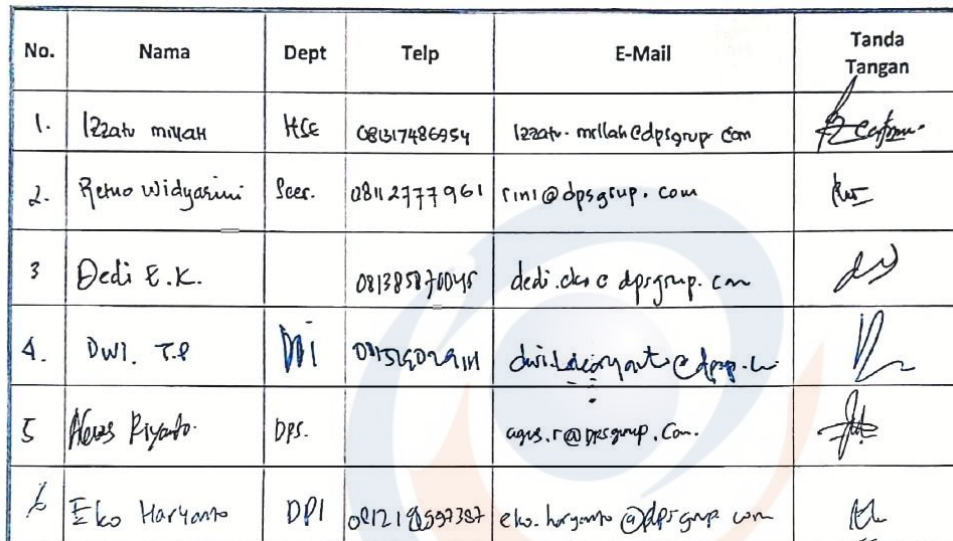 No. Nama Dept Telp E-Mail Tanda Tangan
1. Izzatu millah HSE 081317486954 Izzatu.millah@dpsgrup.com
2. Retno Widyarini Scer. 08112777961 rini@dpsgrup.com
3 Dedi E.K. 081385870045 dedi.eko@dpsgrup.com
4. DWI. T.P
5 Agus Riyanto. DPS. agus.r@DPSgrup.Com.
6 Eko Haryanto DPI eko.haryanto@dpsgrup com